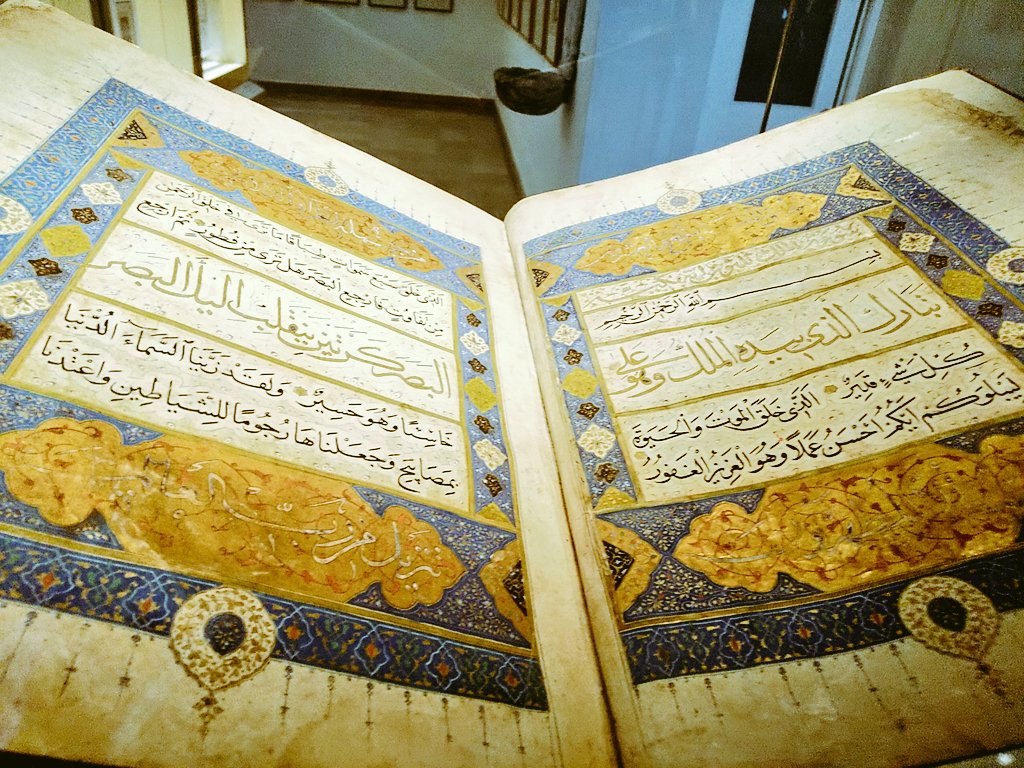 بسم الله الرحمن الرحيم
تبارك الذي بيده الملك وهو على
كل شيء قدير الذي خلق الموت والحيوة
ليبلوكم ايكم احسن عملا وهو العزيز الغفور
الذي خلق سبع سموات طباقا ما ترى في خلق الرحمن
من تفاوت فارجع البصر هل ترى من فطور ثم ارجع
البصر كرتين ينقلب اليك البصر
خاسئا وهو حسير ولقد زينا السماء الدنيا
بمصابيح وجعلناها رجوما للشياطين واعتدنا
تنزيل من رب العالمين